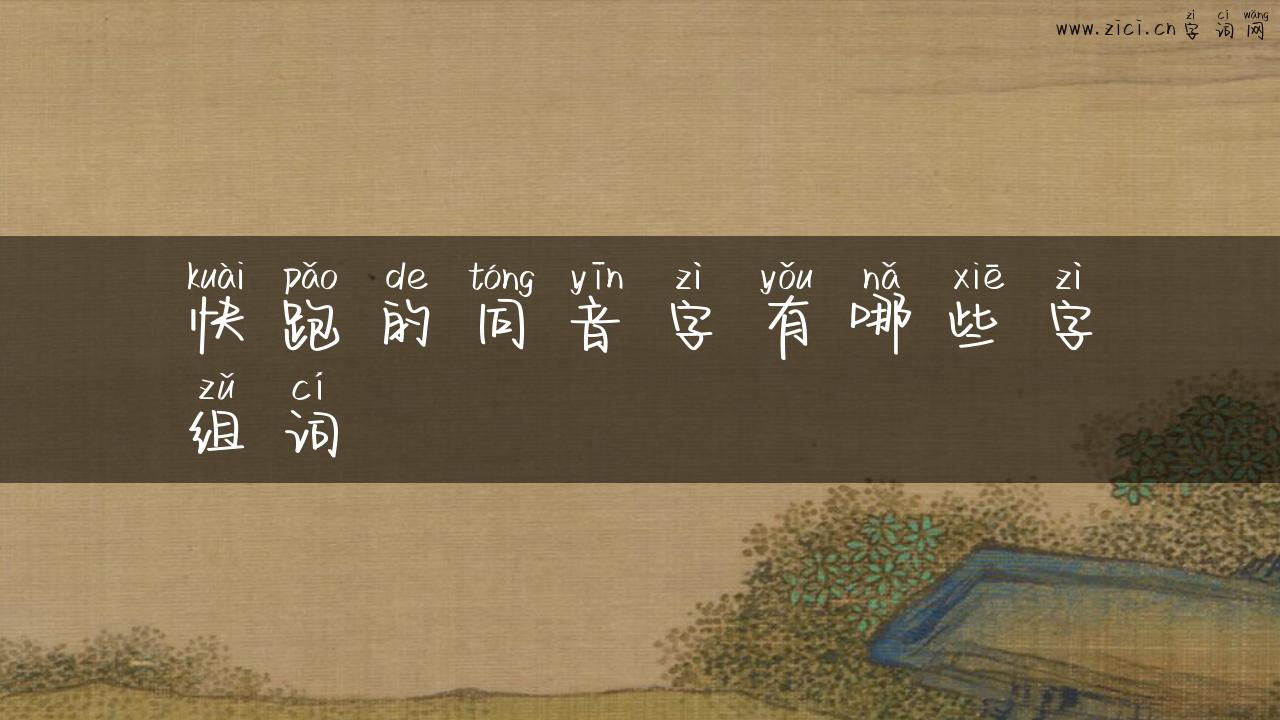 zì cí wǎng
www.zici.cn 字词网
kuài pǎo de tóng yīn zì yǒu nǎ xiē zì
快跑的同音字有哪些字
zǔ cí
组词